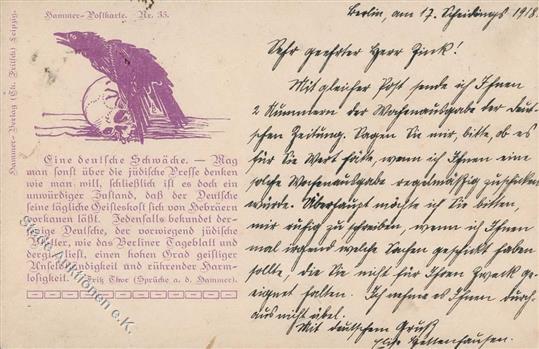 Hammer-Postkarte. Nr. 35.
Hammer-Verlag (Th. Fritsch) Leipzig.
Eine deutsche Schwäche. — Mag
man sonst über die jüdische Presse denken
wie man will, schließlich ist es doch ein
unwürdiger Zustand, daß der Deutsche
seine tägliche Geisteskost sich von Hebräern
vorkauen läßt. Jedenfalls bekundet der-
jenige Deutsche, der vorwiegend jüdische
Blätter, wie das Berliner Tageblatt und
dergl. liest, einen hohen Grad geistiger
Unselbständigkeit und rührender Harm-
losigkeit. Fritz Thor (Sprüche a. d. Hammer).
Berlin, am 17. Scheidings 1918.
Sehr geehrter Herr Zink!
Mit gleicher Post sende ich Ihnen
2 Nummern der Wochenausgabe der Deut-
schen Zeitung. Sagen Sie mir, bitte, ob es
für Sie Wert hätte, wenn ich Ihnen eine
solche Wochenausgabe regelmäßig zuschicken
würde. Überhaupt möchte ich Sie bitten,
mir ruhig zu schreiben, wenn ich Ihnen
mal irgend welche Sachen geschickt haben
sollte, die Sie nicht für Ihren Zweck ge-
eignet halten. Ich nehme es Ihnen durch-
aus nicht übel.
Mit deutschem Gruß
Stade Auktionen e.K.